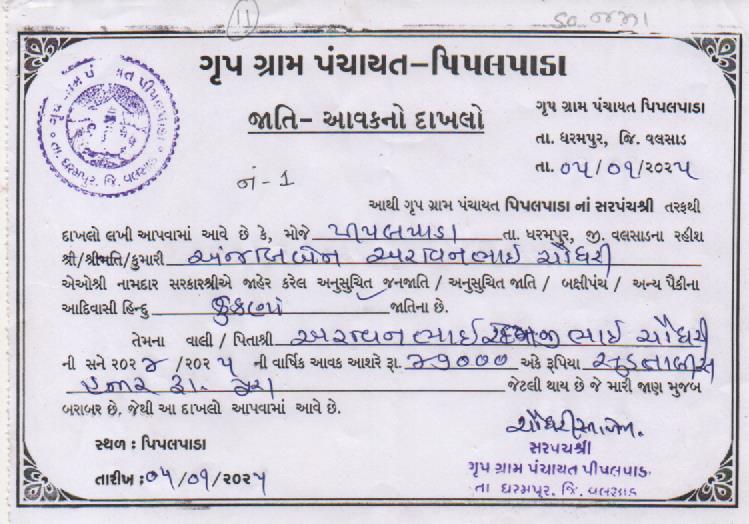 11
ગૃપ ગ્રામ પંચાયત-પિપલપાડા
જાતિ- આવકનો દાખલો
ગૃપ ગ્રામ પંચાયત પિપલપાડા
તા. ધરમપુર, જિ. વલસાડ
તા. ૦૫/૦૧/૨૦૨૫
નં - 1
ગૃપ ગ્રામ પં યત પીપલપાડા
તા. ધરમપુર. જિ. વલસાડ
આથી ગૃપ ગ્રામ પંચાયત પિપલપાડા નાં સરપંચશ્રી તરફથી
દાખલો લખી આપવામાં આવે છે કે, મોજે પીપલપાડા તા. ધરમપુર, જી. વલસાડના રહીશ
શ્રી/શ્રીમતિ/કુમારી અંજલિબેન અરવનભાઈ ચૌધરી
એઓશ્રી નામદાર સરકારશ્રીએ જાહેર કરેલ અનુસુચિત જનજાતિ / અનુસુચિત જાતિ / બક્ષીપંચ / અન્ય પૈકીના
આદિવાસી હિન્દુ કુકણા જાતિના છે.
તેમના વાલી / પિતાશ્રી અરવનભાઈ ભાઈ ચૌધરી
ની સને ૨૦૨૪ /૨૦૨૫ ની વાર્ષિક આવક આશરે રૂા. ૪૭૦૦૦ અંકે રૂપિયા સુડતાલીસ
હજાર રૂા. પુરા જેટલી થાય છે જે મારી જાણ મુજબ
બરાબર છે. જેથી આ દાખલો આપવામાં આવે છે.
સ્થળ : પિપલપાડા
સરપચશ્રી
ગૃપ ગ્રામ પંચાયત પીપલપાડા.
તા ધરમપુર. જિ. વલસાડ
તારીખ : ૦૫/૦૧/૨૦૨૫